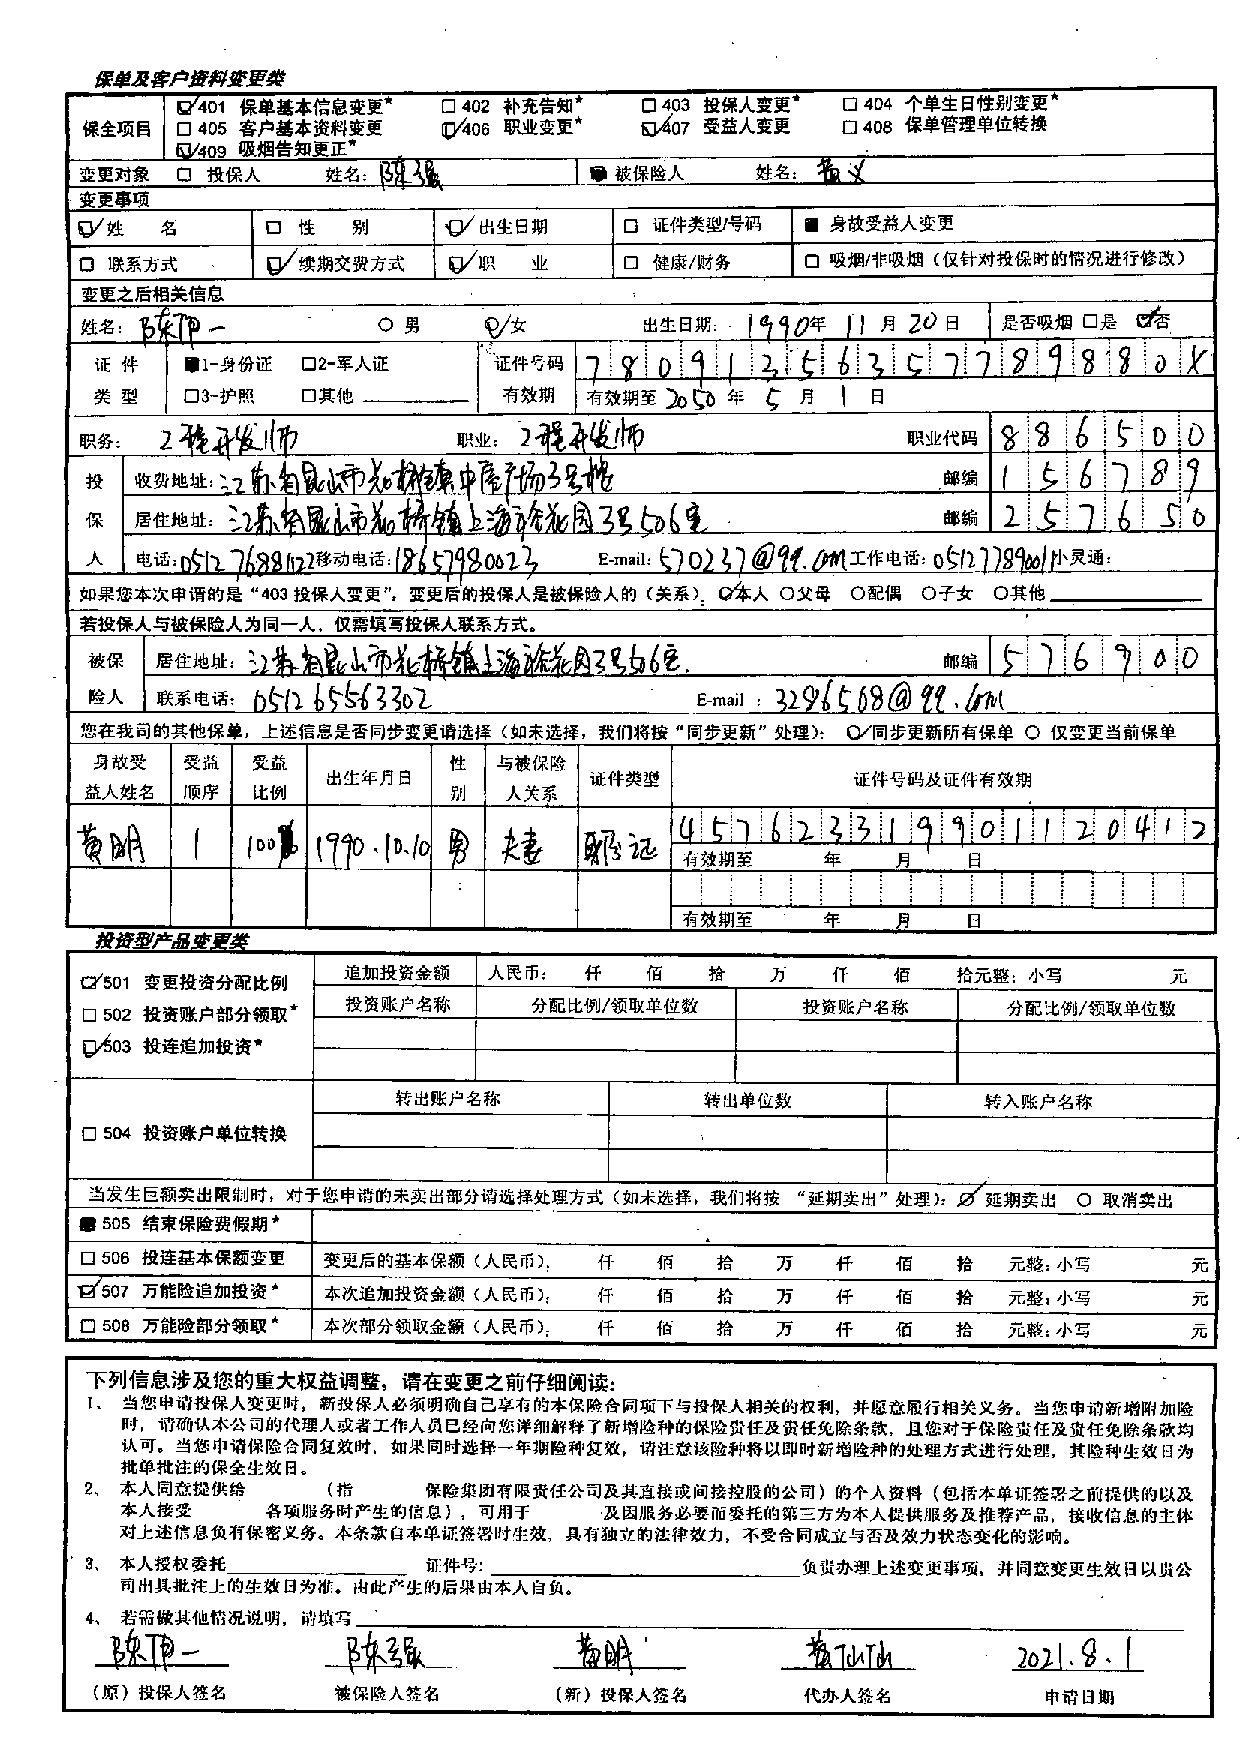 保单及客户资料变更类
保全项目 ☑401 保单基本信息变更* □402 补充告知* □403 投保人变更* □404 个单生日性别变更*
□405 客户基本资料变更 ☑406 职业变更* ☑407 受益人变更 □408 保单管理单位转换
☑409 吸烟告知更正*
变更对象 □ 投保人 姓名：陈强 ■ 被保险人 姓名：黄义
变更事项
☑姓 名 □ 性 别 ☑出生日期 □ 证件类型/号码 ■ 身故受益人变更
□ 联系方式 ☑续期交费方式 ☑职 业 □ 健康/财务 □ 吸烟/非吸烟（仅针对投保时的情况进行修改）
变更之后相关信息
姓名：陈一 ○男 ☑女 出生日期：1990年11月20日 是否吸烟 □是 ☑否
证件 ■1-身份证 □2-军人证 证件号码 78091256357789880X
类型 □3-护照 □其他 有效期 有效期至2050年5月1日
职务：工程开发师 职业：工程开发师 职业代码 886500
投 收费地址：江苏省昆山市花桥镇中 广场3号楼 邮编 156789
保 居住地址：江苏省昆山市花桥镇上海 花园3号506室 邮编 257650
人 电话：0512 76881122 移动电话：18657980023 E-mail：570237@qq.com 工作电话：051277890011 小灵通：
如果您本次申请的是“403投保人变更”，变更后的投保人是被保险人的（关系）：☑本人 ○父母 ○配偶 ○子女 ○其他
若投保人与被保险人为同一人，仅需填写投保人联系方式。
被保 居住地址：江苏省昆山市花桥镇上海 花园3号506室 邮编 576900
险人 联系电话：051265563302 E-mail：3286508@qq.com
您在我司的其他保单，上述信息是否同步变更请选择（如未选择，我们将按“同步更新”处理）：☑同步更新所有保单 ○ 仅变更当前保单
身故受益人姓名 受益顺序 受益比例 出生年月日 性别 与被保险人关系 证件类型 证件号码及证件有效期
黄明 1 100% 1990.10.10 男 夫妻 身份证 457623319901120412
有效期至 年 月 日
有效期至 年 月 日
投资型产品变更类
☑501 变更投资分配比例 追加投资金额 人民币： 仟 佰 拾 万 仟 佰 拾元整：小写 元
□502 投资账户部分领取* 投资账户名称 分配比例/领取单位数 投资账户名称 分配比例/领取单位数
☑503 投连追加投资*
转出账户名称 转出单位数 转入账户名称
□504 投资账户单位转换
当发生巨额卖出限制时，对于您申请的未卖出部分请选择处理方式（如未选择，我们将按 “延期卖出”处理）：☑ 延期卖出 ○ 取消卖出
■505 结束保险费假期*
□506 投连基本保额变更 变更后的基本保额（人民币）： 仟 佰 拾 万 仟 佰 拾 元整：小写 元
☑507 万能险追加投资* 本次追加投资金额（人民币）： 仟 佰 拾 万 仟 佰 拾 元整：小写 元
□508 万能险部分领取* 本次部分领取金额（人民币）： 仟 佰 拾 万 仟 佰 拾 元整：小写 元
下列信息涉及您的重大权益调整，请在变更之前仔细阅读：
1、 当您申请投保人变更时，新投保人必须明确自己享有的本保险合同项下与投保人相关的权利，并愿意履行相关义务。当您申请新增附加险
时，请确认本公司的代理人或者工作人员已经向您详细解释了新增险种的保险责任及责任免除条款，且您对于保险责任及责任免除条款均
认可。当您申请保险合同复效时，如果同时选择一年期险种复效，请注意该险种将以即时新增险种的处理方式进行处理，其险种生效日为
批单批注的保全生效日。
2、 本人同意提供给 （指 保险集团有限责任公司及其直接或间接控股的公司）的个人资料（包括本单证签署之前提供的以及
本人接受 各项服务时产生的信息），可用于 及因服务必要而委托的第三方为本人提供服务及推荐产品，接收信息的主体
对上述信息负有保密义务。本条款自本单证签署时生效，具有独立的法律效力，不受合同成立与否及效力状态变化的影响。
3、 本人授权委托 证件号： 负责办理上述变更事项，并同意变更生效日以贵公
司出具批注上的生效日为准。由此产生的后果由本人自负。
4、 若需做其他情况说明，请填写
陈一 陈强 黄明 黄仙仙 2021.8.1
（原）投保人签名 被保险人签名 （新）投保人签名 代办人签名 申请日期